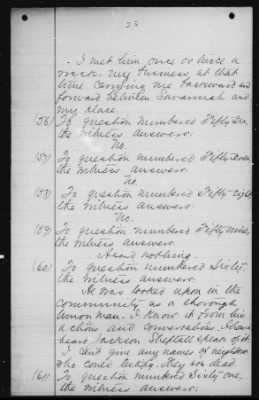 23
I met him once or twice a
week. My business at that
time carrying me backward and
forward between Savannah and
my place.
(56) To question numbered Fifty six,
the witness answers.
No.
(57) To question numbered Fifty seven,
the witness answers.
No.
(58) To question numbered Fifty-eight,
the witness answers.
No.
(59) To question numbered Fifty nine,
the witness answers.
heard nothing.
(60) To question numbered Sixty,
the witness answers.
He was looked upon in the
community as a thorough
union man. I know it from his
actions and conversation. I have
heard Jackson Sheftall speak of it.
I cant give any names of neighbors
who could testify. They are dead.
(61) To question numbered Sixty one,
the witness answers.